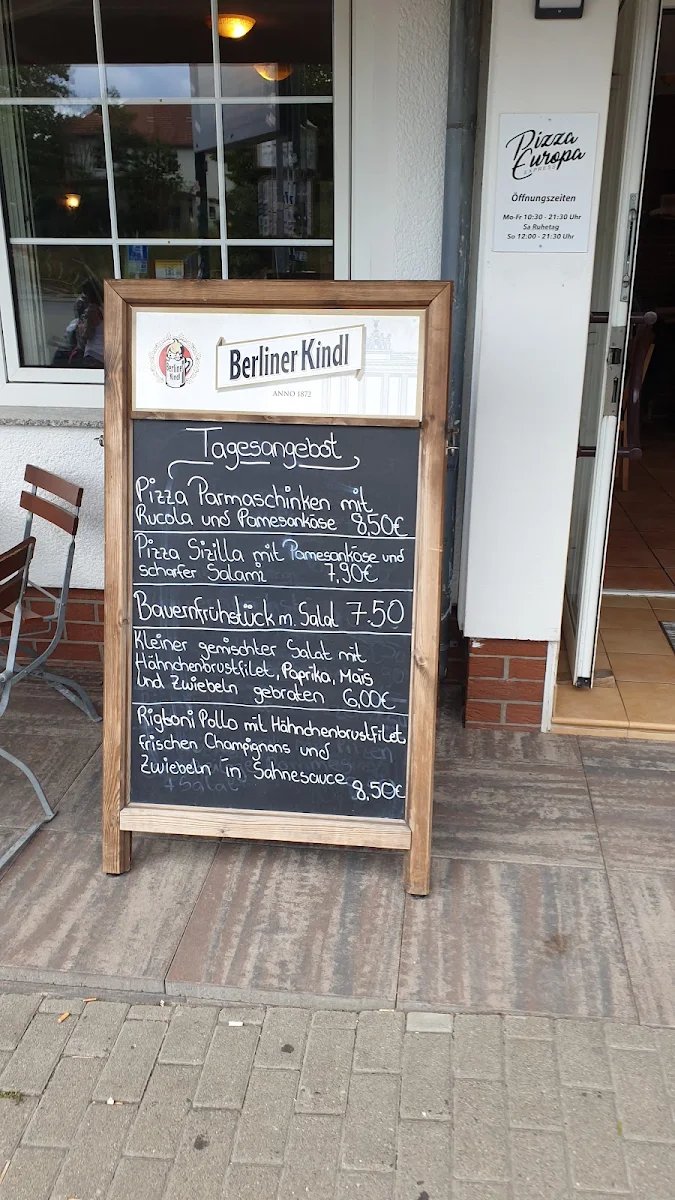 Pizza
Europa
EXPRESS
Öffnungszeiten
Mo-Fr 10:30 - 21:30 Uhr
Sa Ruhetag
So 12:00 - 21:30 Uhr
Berliner
Kindl
Berliner Kindl
ANNO 1872
Tagesangebot
Pizza Parmaschinken mit
Rucola und Pamesankäse 8,50€
Pizza Sizilla mit Pamesankäse und
scharfer Salami 7,90€
Bauernfrühstück m. Salat 7.50
Kleiner gemischter Salat mit
Hähnchenbrustfilet, Paprika, Mais
und Zwiebeln gebraten 6,00€
Rigtoni Pollo mit Hähnchenbrustfilet
frischen Champignons und
Zwiebeln in Sahnesauce 8,50€